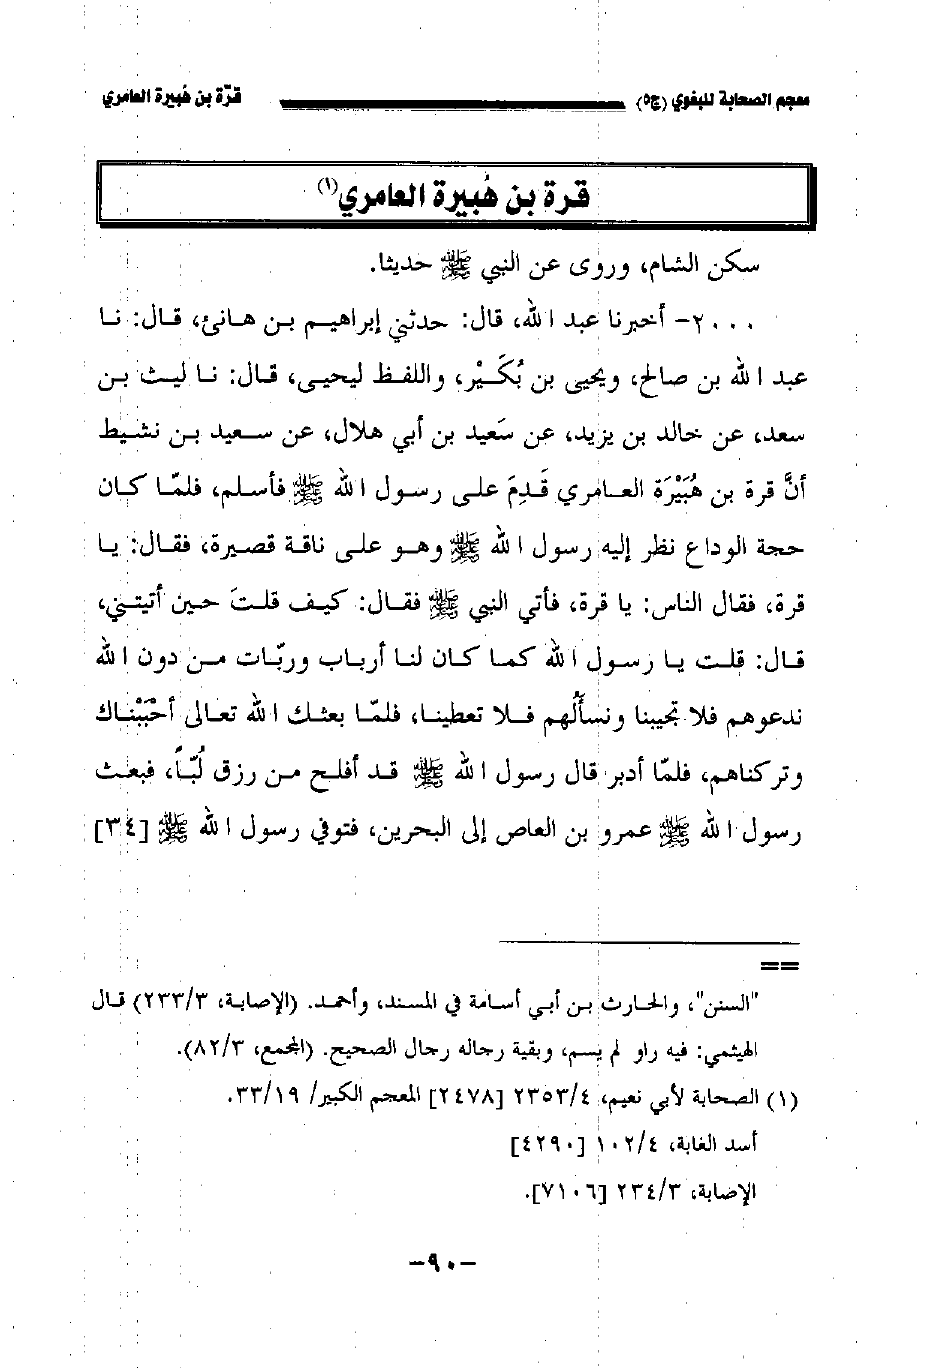 معجم الصحابة للبغوي (ج٥) قرّة بن هُبيرة العامري
قرة بن هُبيرة العامري(١)
سكن الشام، وروى عن النبي ﷺ حديثا.
٢٠٠٠- أخبرنا عبد الله، قال: حدثني إبراهيم بن هانئ، قال: نا
عبد الله بن صالح، ويحيى بن بُكَيْر، واللفظ ليحيى، قال: نا ليث بن
سعد، عن خالد بن يزيد، عن سَعيد بن أبي هلال، عن سعيد بن نشيط
أنَّ قرة بن هُبَيْرَة العامري قَدِمَ على رسول الله ﷺ فأسلم، فلمّا كان
حجة الوداع نظر إليه رسول الله ﷺ وهو على ناقة قصيرة، فقال: يا
قرة، فقال الناس: يا قرة، فأتي النبي ﷺ فقال: كيف قلتَ حين أتيتني،
قال: قلت يا رسول الله كما كان لنا أرباب وربّات من دون الله
ندعوهم فلا تجيبنا ونسألُهم فلا تعطينا، فلمّا بعثك الله تعالى أحْبَبْناك
وتركناهم، فلمّا أدبر قال رسول الله ﷺ قد أفلح من رزق لُبّاً، فبعث
رسول الله ﷺ عمرو بن العاص إلى البحرين، فتوفي رسول الله ﷺ [٣٤]
==
"السنن"، والحارث بن أبي أسامة في المسند، وأحمد. (الإصابة، ٢٣٣/٣) قال
الهيثمي: فيه راو لم يسم، وبقية رجاله رجال الصحيح. (المجمع، ٨٢/٣).
(١) الصحابة لأبي نعيم، ٢٣٥٣/٤ [٢٤٧٨] المعجم الكبير/ ٣٣/١٩.
أسد الغابة، ١٠٢/٤ [٤٢٩٠]
الإصابة، ٢٣٤/٣ [٧١٠٦].
-٩٠-